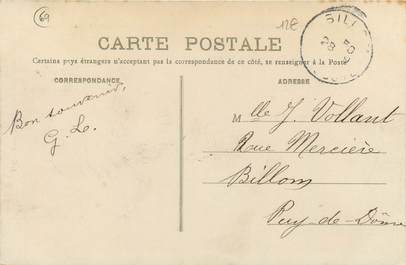 69
12€
CARTE POSTALE
Certains pays étrangers n'acceptant pas la correspondance de ce côté, se renseigner à la Poste
CORRESPONDANCE
ADRESSE
Bon souvenir,
G. L.
Mlle J. Vollant
Rue Mercière
Billom
Puy-de-Dôme